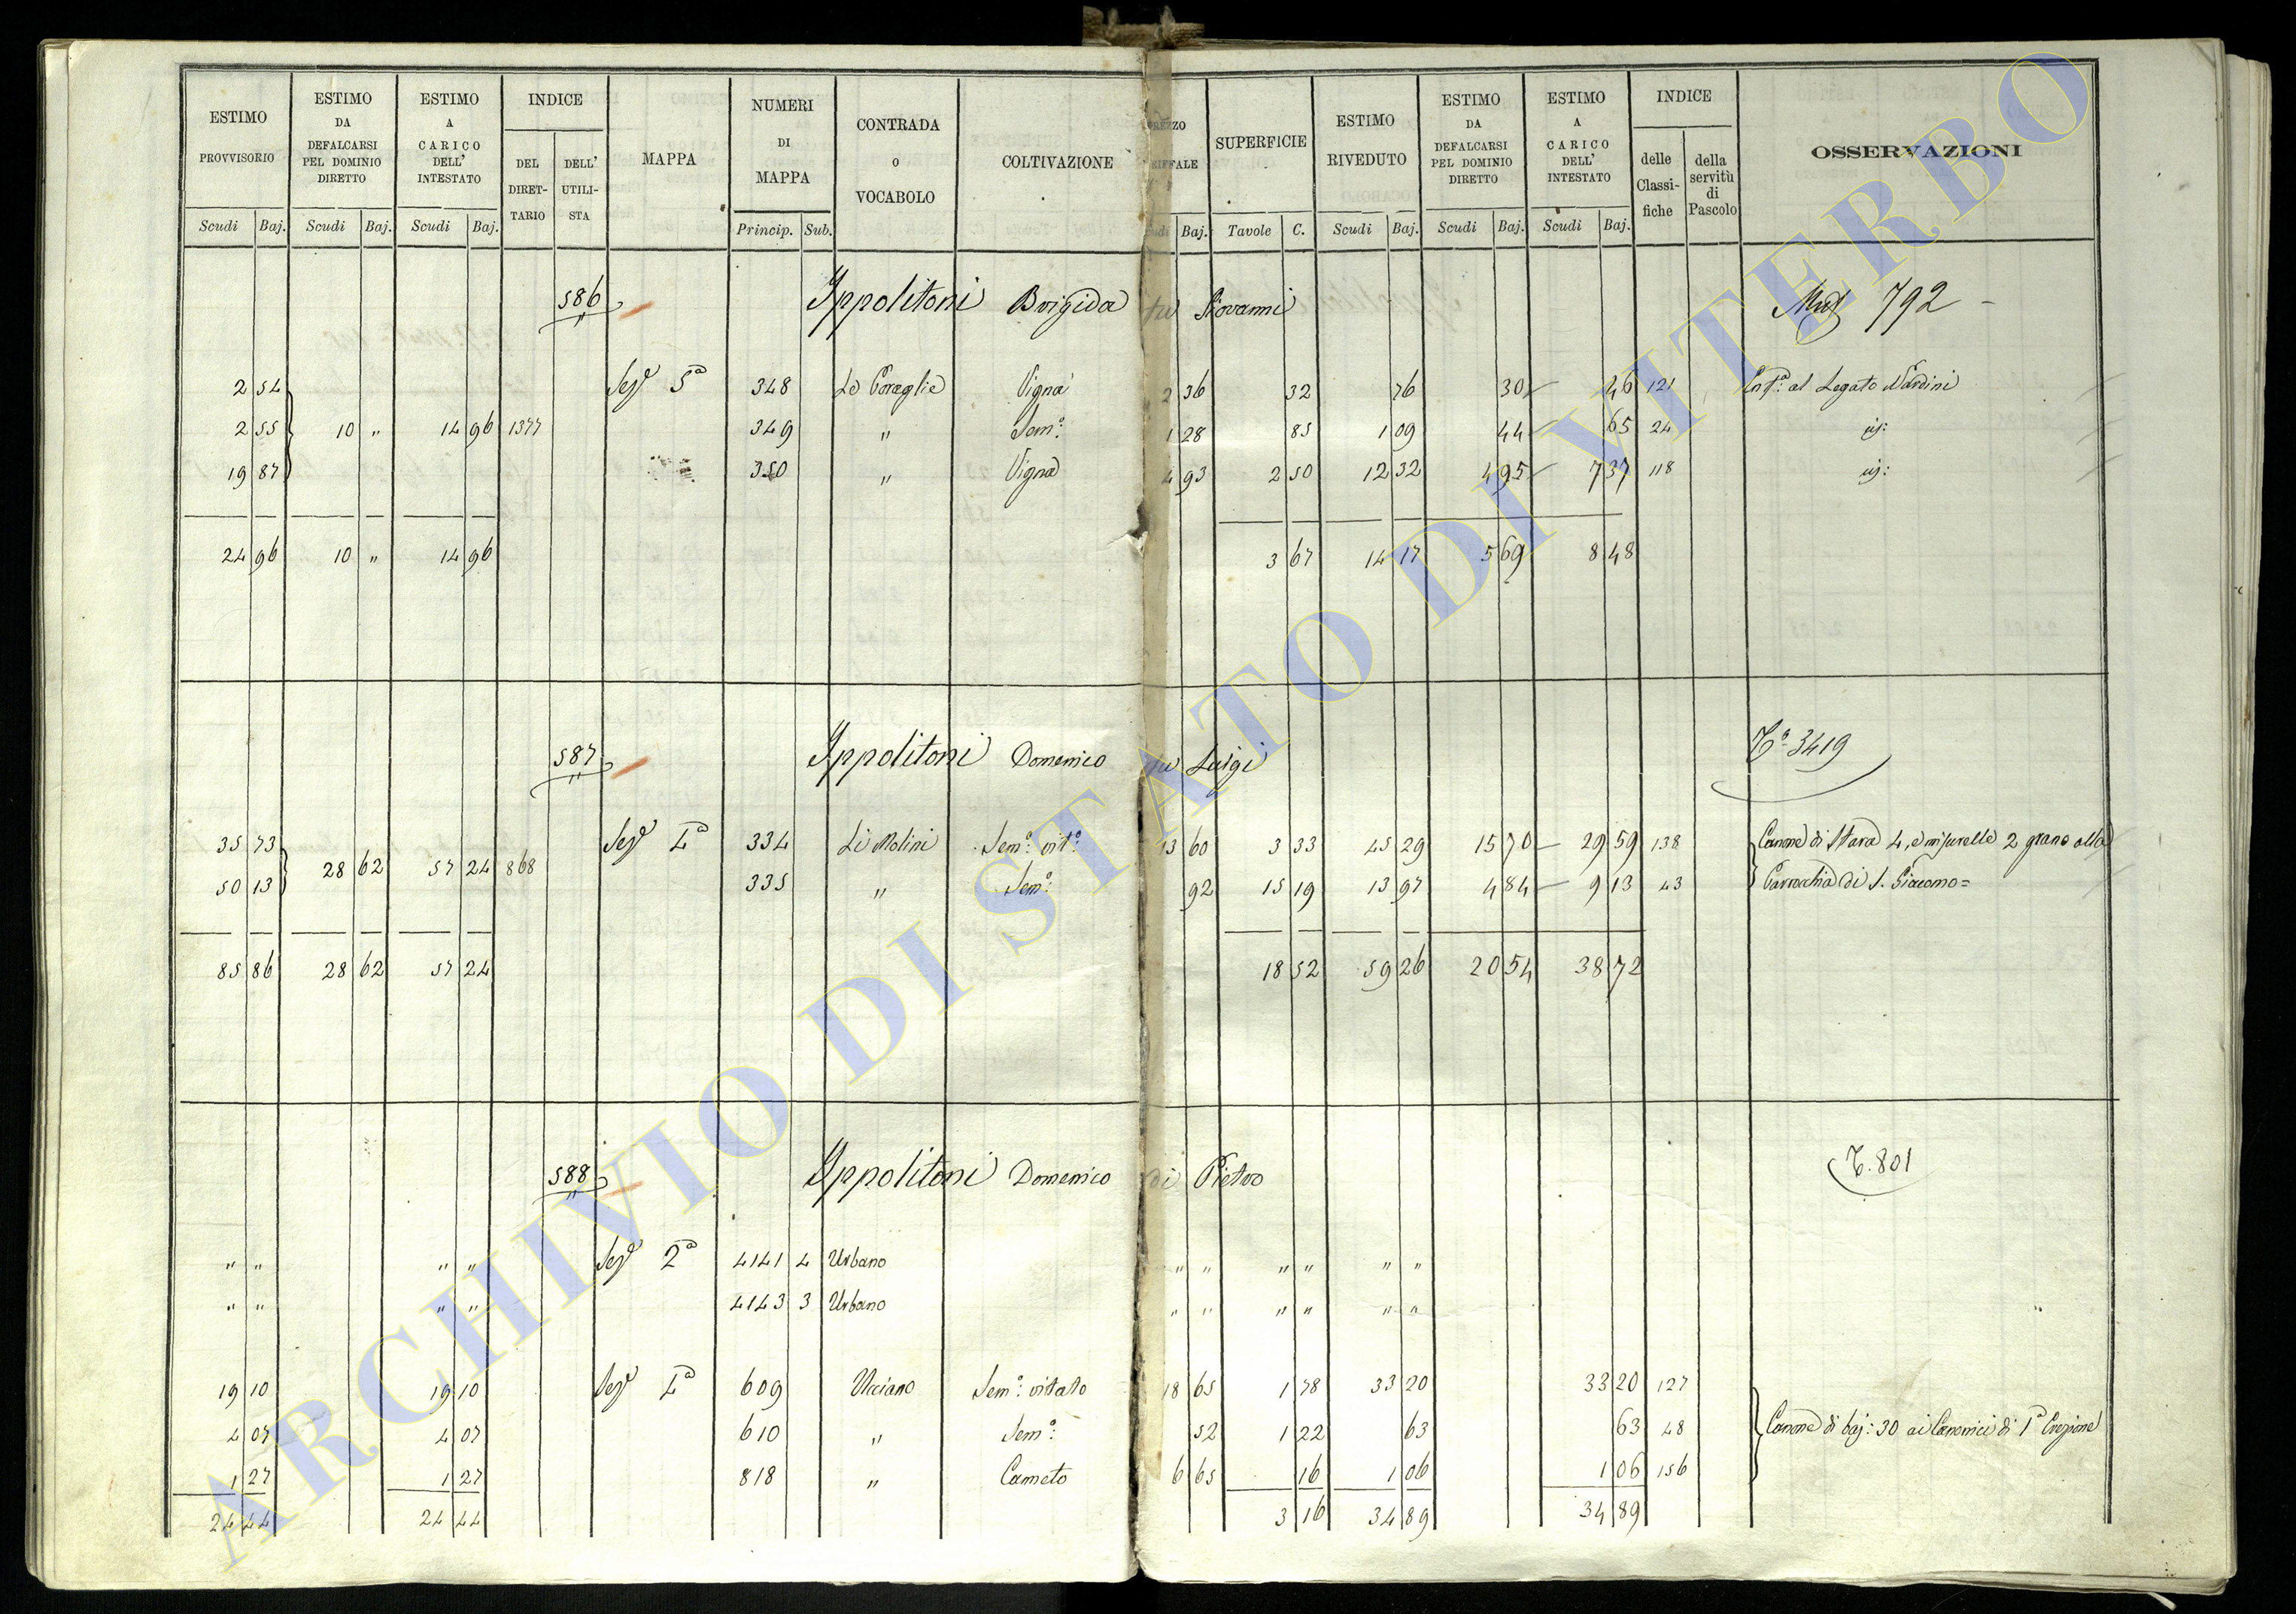 ESTIMO PROVVISORIO Scudi Baj.
ESTIMO DA DEFALCARSI PEL DOMINIO DIRETTO Scudi Baj.
ESTIMO A CARICO DELL' INTESTATO Scudi Baj.
INDICE DEL DIRET-TARIO DELL' UTILI-STA
MAPPA
NUMERI DI MAPPA Princip. Sub.
CONTRADA o VOCABOLO
COLTIVAZIONE
Baj.
SUPERFICIE Tavole C.
ESTIMO RIVEDUTO Scudi Baj.
ESTIMO DA DEFALCARSI PEL DOMINIO DIRETTO Scudi Baj.
ESTIMO A CARICO DELL' INTESTATO Scudi Baj.
INDICE delle Classi-fiche della servitù di Pascolo
OSSERVAZIONI
586 Ippolitoni Brigida fu Giovanni 792
2 54 5ª 348 Vigna 2 36 32 76 30 46 121 al Legato Nardini
2 55 10 " 14 96 1377 349 " Semº: 1 28 85 1 09 44 65 24
19 87 350 " Vigna 4 93 2 50 12 32 4 95 7 37 118
24 96 10 " 14 96 3 67 14 17 5 69 8 48
587 Ippolitoni Domenico fu Luigi 3419
35 73 4ª 334 Li Molini Semº: vitº: 13 60 3 33 45 29 15 70 29 59 138 Canone di Stara 4, e misurelle 2 grano alla
50 13 28 62 57 24 868 335 " Semº: 92 15 19 13 97 4 84 9 13 43 Parrochia di S. Giacomo =
85 86 28 62 57 24 18 52 59 26 20 54 38 72
588 Ippolitoni Domenico di Pietro T. 801
" " " " 2ª 4141 4 Urbano " " " " " "
" " " " 4143 3 Urbano " " " " " " "
19 10 19 10 4ª 609 Ucciano Semº: vitato 18 65 1 78 33 20 33 20 127
4 07 4 07 610 " Semº: 52 1 22 63 63 48 Canone di baj: 30 ai Canonici di 1ª Erezione
1 27 1 27 818 " Canneto 6 65 16 1 06 1 06 156
24 44 24 44 3 16 34 89 34 89
ARCHIVIO DI STATO DI VITERBO